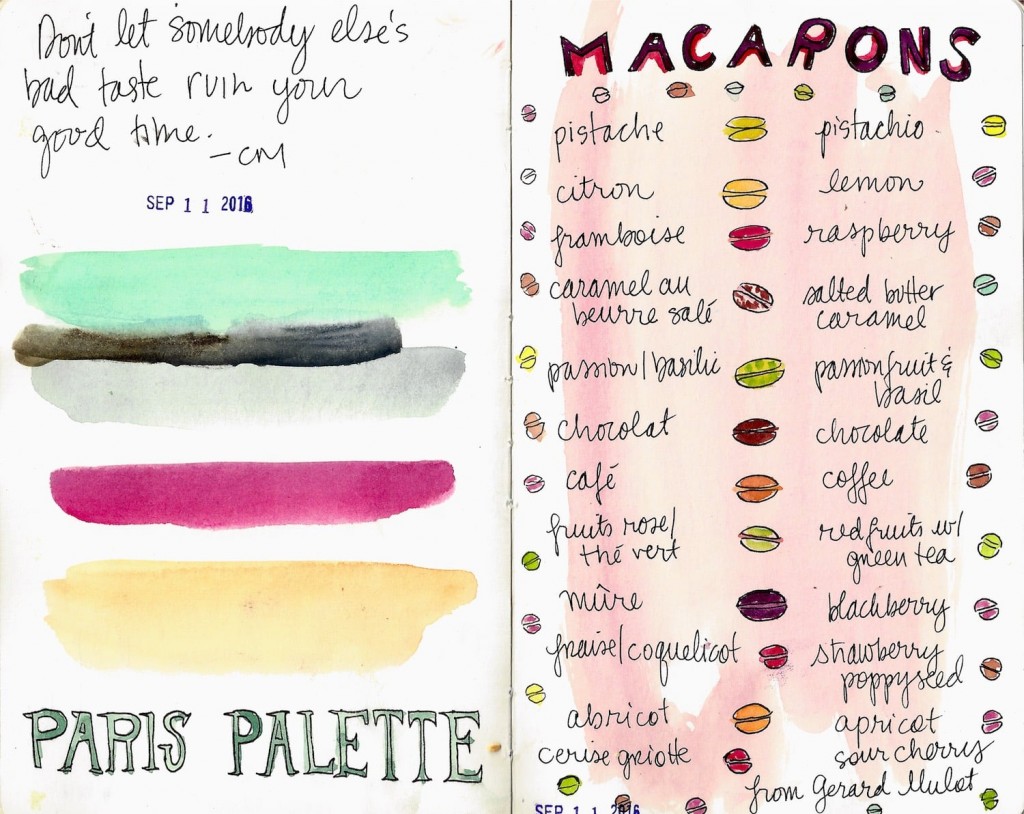 Don't let somebody else's
bad taste ruin your
good time.
-CM
SEP 1 1 2016
PARIS PALETTE
MACARONS
pistache pistachio
citron lemon
framboise raspberry
caramel au salted butter
beurre salé caramel
passion/basilic passionfruit &
basil
chocolat chocolate
café coffee
fruits rose/ red fruits w/
thé vert green tea
mûre blackberry
fraise/coquelicot strawberry
poppyseed
abricot apricot
cerise griotte sour cherry
from Gerard Mulot
SEP 1 1 2016